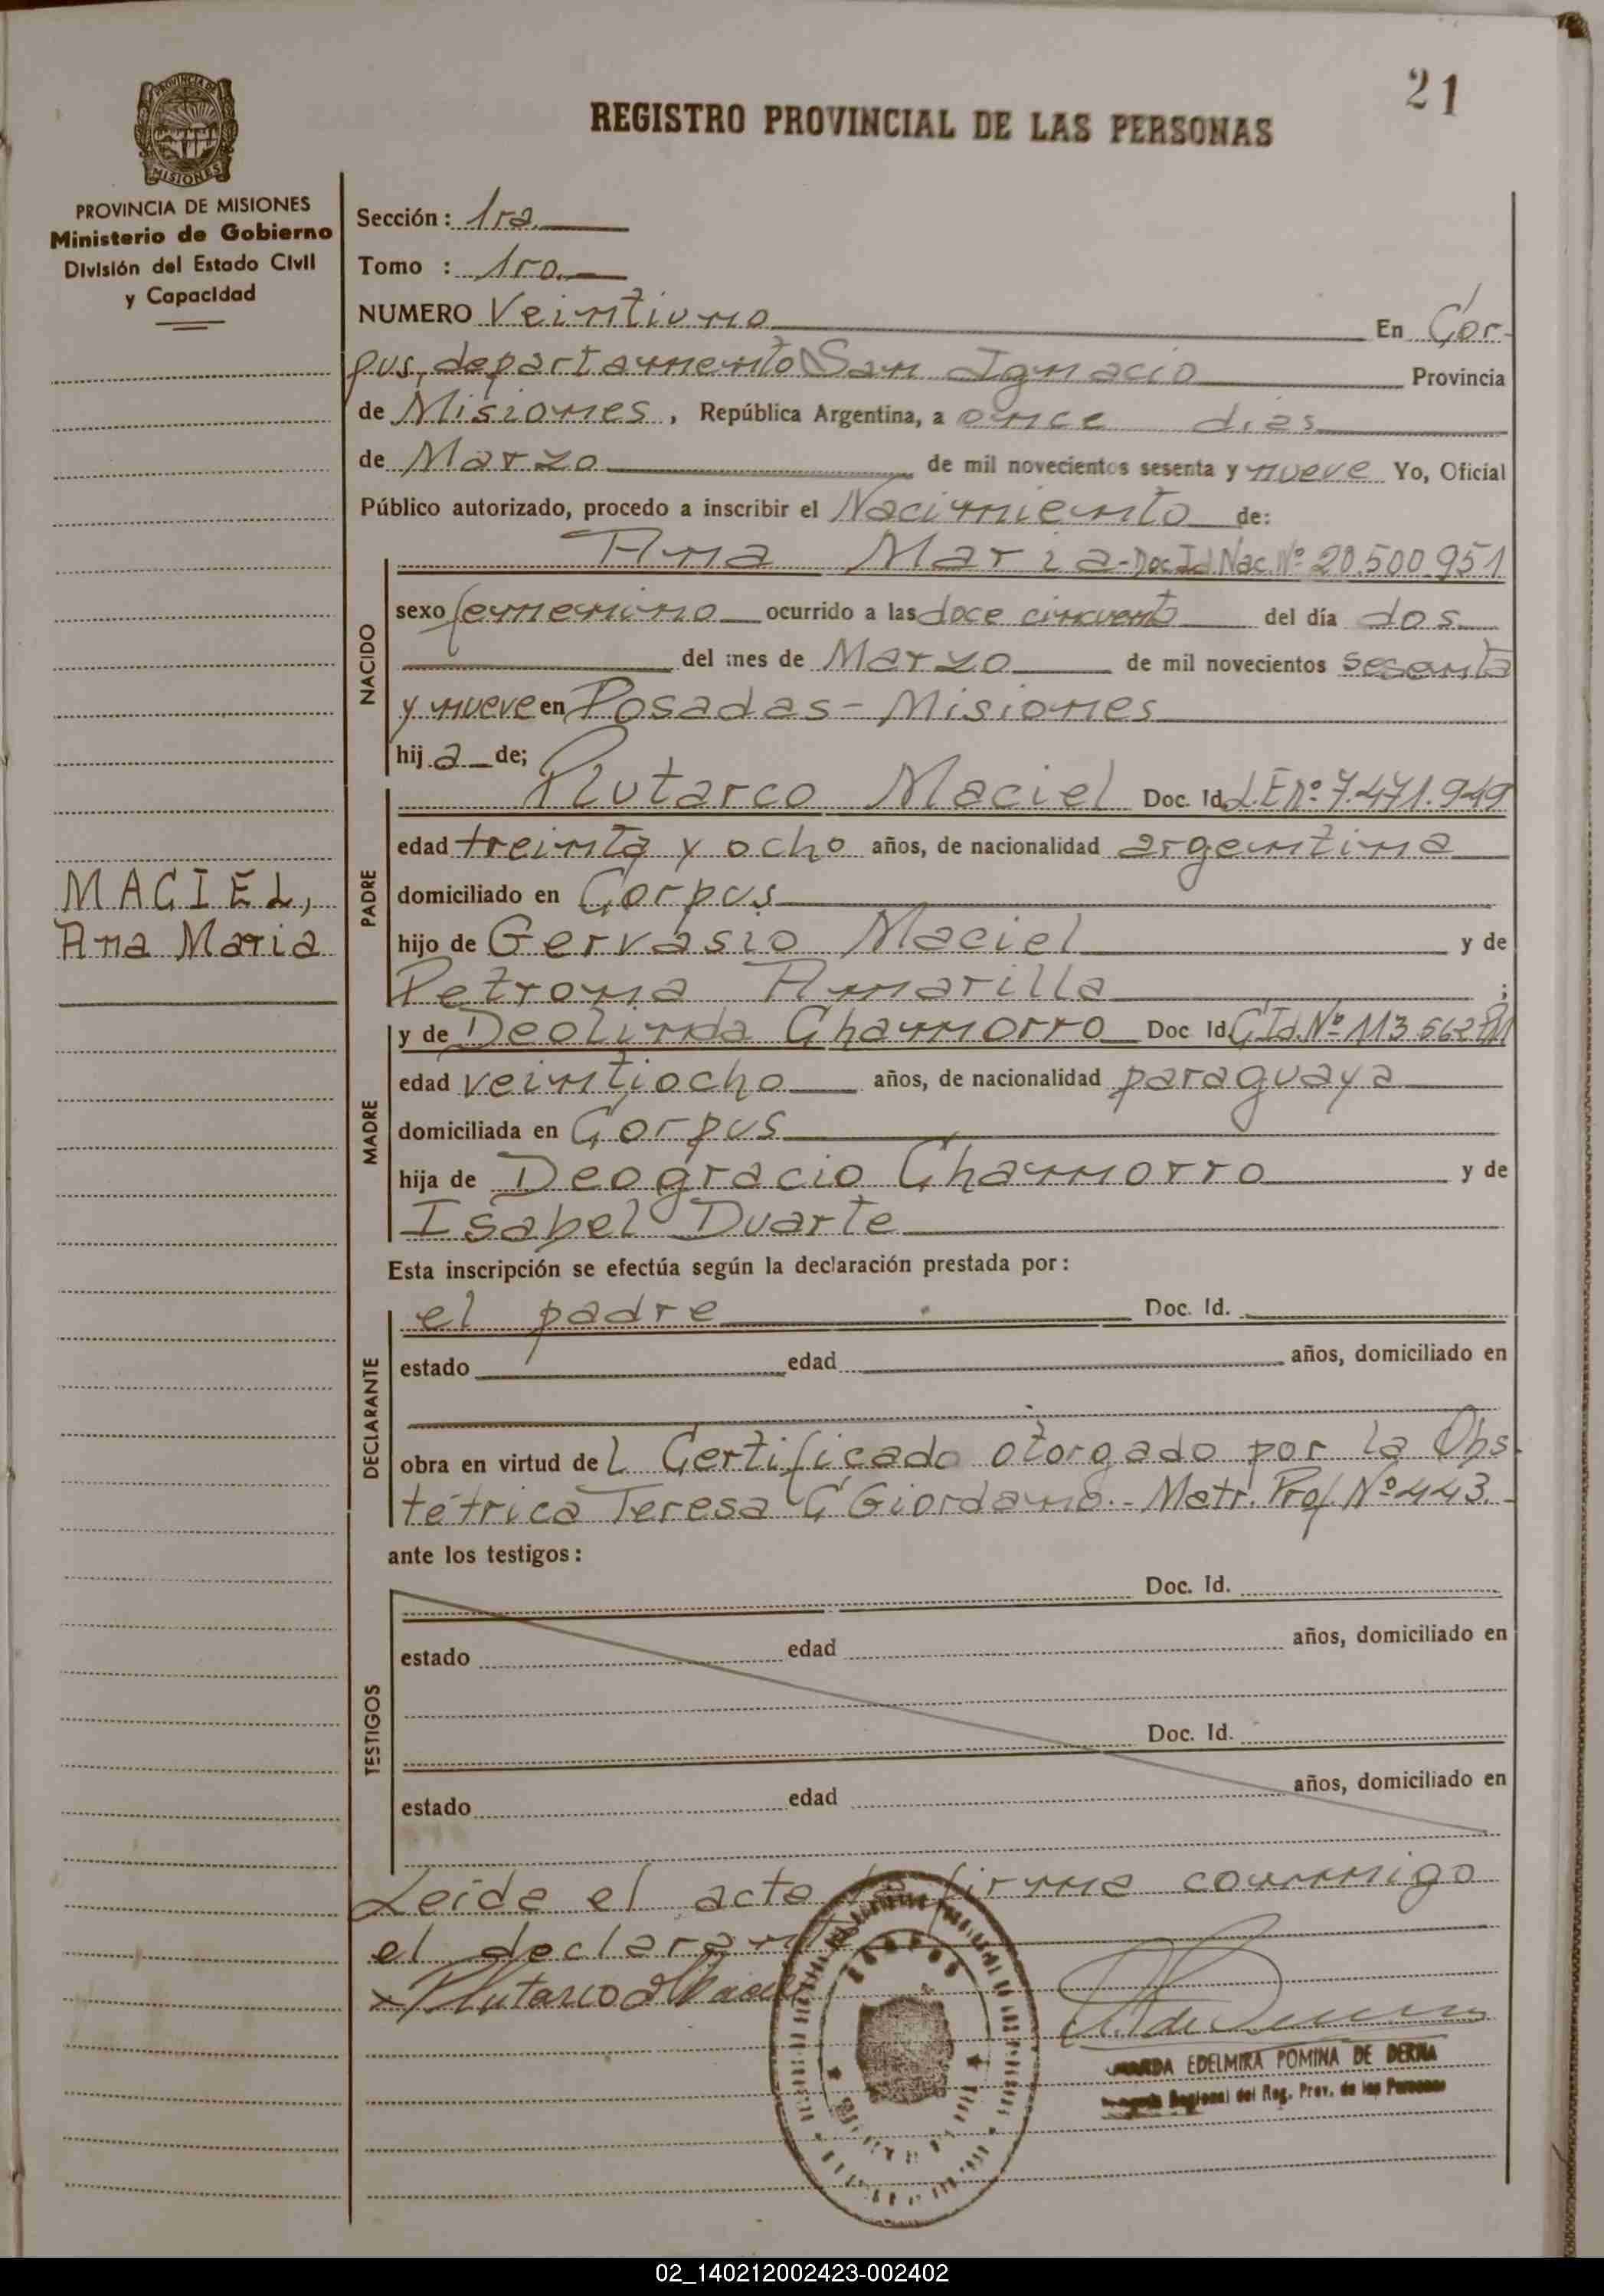 21
REGISTRO PROVINCIAL DE LAS PERSONAS
PROVINCIA DE MISIONES
MISIONES
PROVINCIA DE MISIONES
Ministerio de Gobierno
División del Estado Civil
y Capacidad
Sección: 1ra.
Tomo : 1ro.
NUMERO Veintiuno En Cor-
pus, departamento San Ignacio Provincia
de Misiones, República Argentina, a once dias
de Marzo de mil novecientos sesenta y nueve Yo, Oficial
Público autorizado, procedo a inscribir el Nacimiento de:
Ana Maria - Doc. Id. Nac. Nº 20.500.951
NACIDO
sexo femenino ocurrido a las doce cincuenta del día dos
del mes de Marzo de mil novecientos sesenta
y nueve en Posadas - Misiones
hij a de;
Plutarco Maciel Doc. Id. L.E Nº 7.471.949
PADRE
edad treinta y ocho años, de nacionalidad argentina
domiciliado en Corpus
MACIEL,
Ana Maria
hijo de Gervasio Maciel y de
Petrona Amarilla ;
y de Deolinda Chamorro Doc Id. C.Id. Nº 113.562
MADRE
edad veintiocho años, de nacionalidad paraguaya
domiciliada en Corpus
hija de Deogracio Chamorro y de
Isabel Duarte
Esta inscripción se efectúa según la declaración prestada por:
el padre Doc. Id.
DECLARANTE
estado edad años, domiciliado en
obra en virtud del Certificado otorgado por la Obs-
tétrica Teresa C Giordano.- Matr. Prof Nº 443.-
ante los testigos:
Doc. Id.
TESTIGOS
estado edad años, domiciliado en
Doc. Id.
estado edad años, domiciliado en
Leida el acta la firma conmigo
el declarante
x Plutarco Maciel
EDELMIRA POMINA DE DERNA
Regional del Reg. Prov. de las Personas
02_140212002423-002402